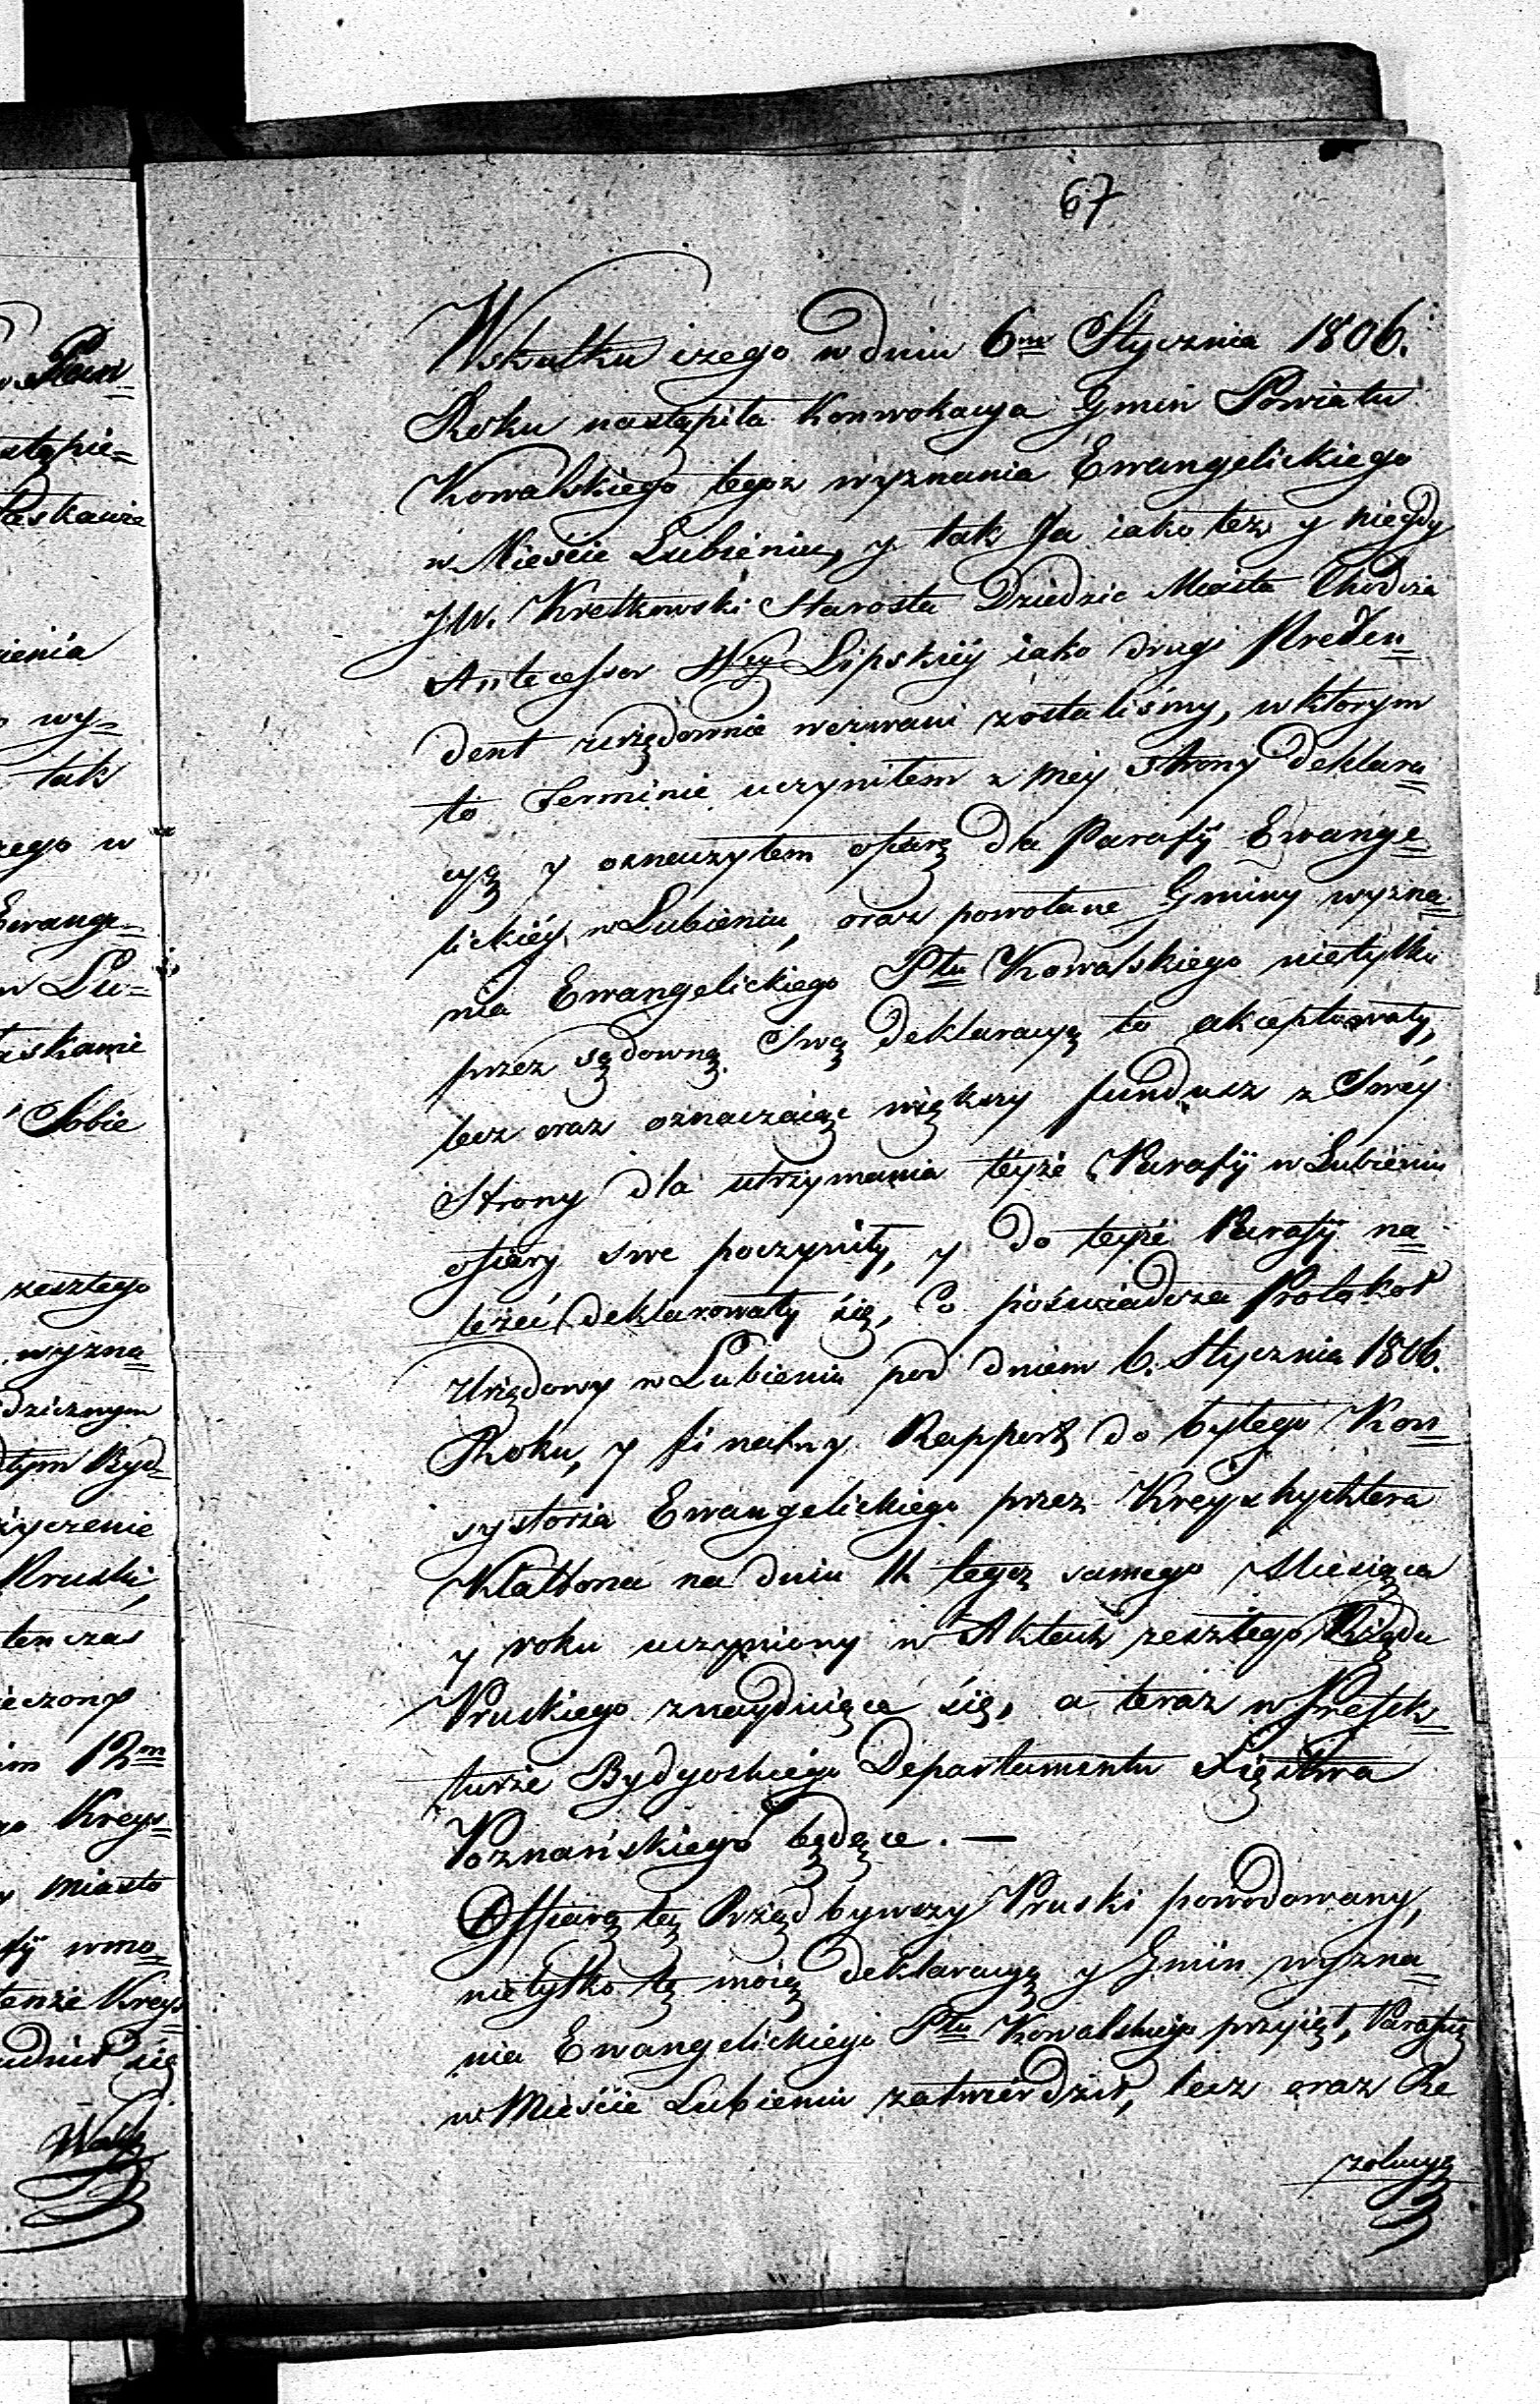 67
Wskutku czego w dniu 6m Stycznia 1806.
Roku nastąpiła Konwokacya Gmin Powiatu
Kowalskiego tegoż wyznania Ewangelickiego
w Mieście Lubieniu, y tak Ja iako też y niegdy
JW. Kretkowski Starosta Dziedzic Miasta Chodcza
Antecessor Wey Lipskiey iako drugi Preten=
dent urzędownie wezwani zostaliśmy, w ktorym
to Terminie uczyniłem z mey strony deklara=
cyą y oznaczyłem ofiarę dla Parafij Ewange=
lickiey w Lubieniu, oraz powołane Gminy wyzna=
nia Ewangelickiego Ptu Kowalskiego nietylko
przez sądowną Swą deklaracyą to akceptowały,
lecz oraz oznaczaiąc większy fundusz z Swey
Strony dla utrzymania teyże Parafij w Lubieniu
ofiary swe poczyniły, y do teyże Parafij na=
leżeć deklarowały się, Co poświadcza Protokoł
Urzędowy w Lubieniu pod dniem 6. Stycznia 1806.
Roku, y finalny Rapport do byłego Kon=
systorza Ewangelickiego przez Kreyshyktera
na dniu 12 tegoż samego Miesiąca
y roku uczyniony w Aktach zeszłego Rządu
Pruskiego znayduiące się, a teraz w Prefek=
turze Bydgoskiego Departamentu Xięstwa
Poznańskiego będące. —
Offiarą tą Rząd bywszy Pruski powodowany,
nietylko tę moię deklaracyą y Gmin wyzna=
nia Ewangelickiego Ptu Kowalskiego przyiął, Parafią
w Mieście Lubieniu zatwierdził, lecz oraz Re
zolucyą
stąpie=
wy=
tak
zego w
Ewange=
w Lu=
Sobie
zeszłego
wyzna=
dzicznym
Pruski,
tenczas
im 12m
Kreys=
y miasto
tenże Kreys